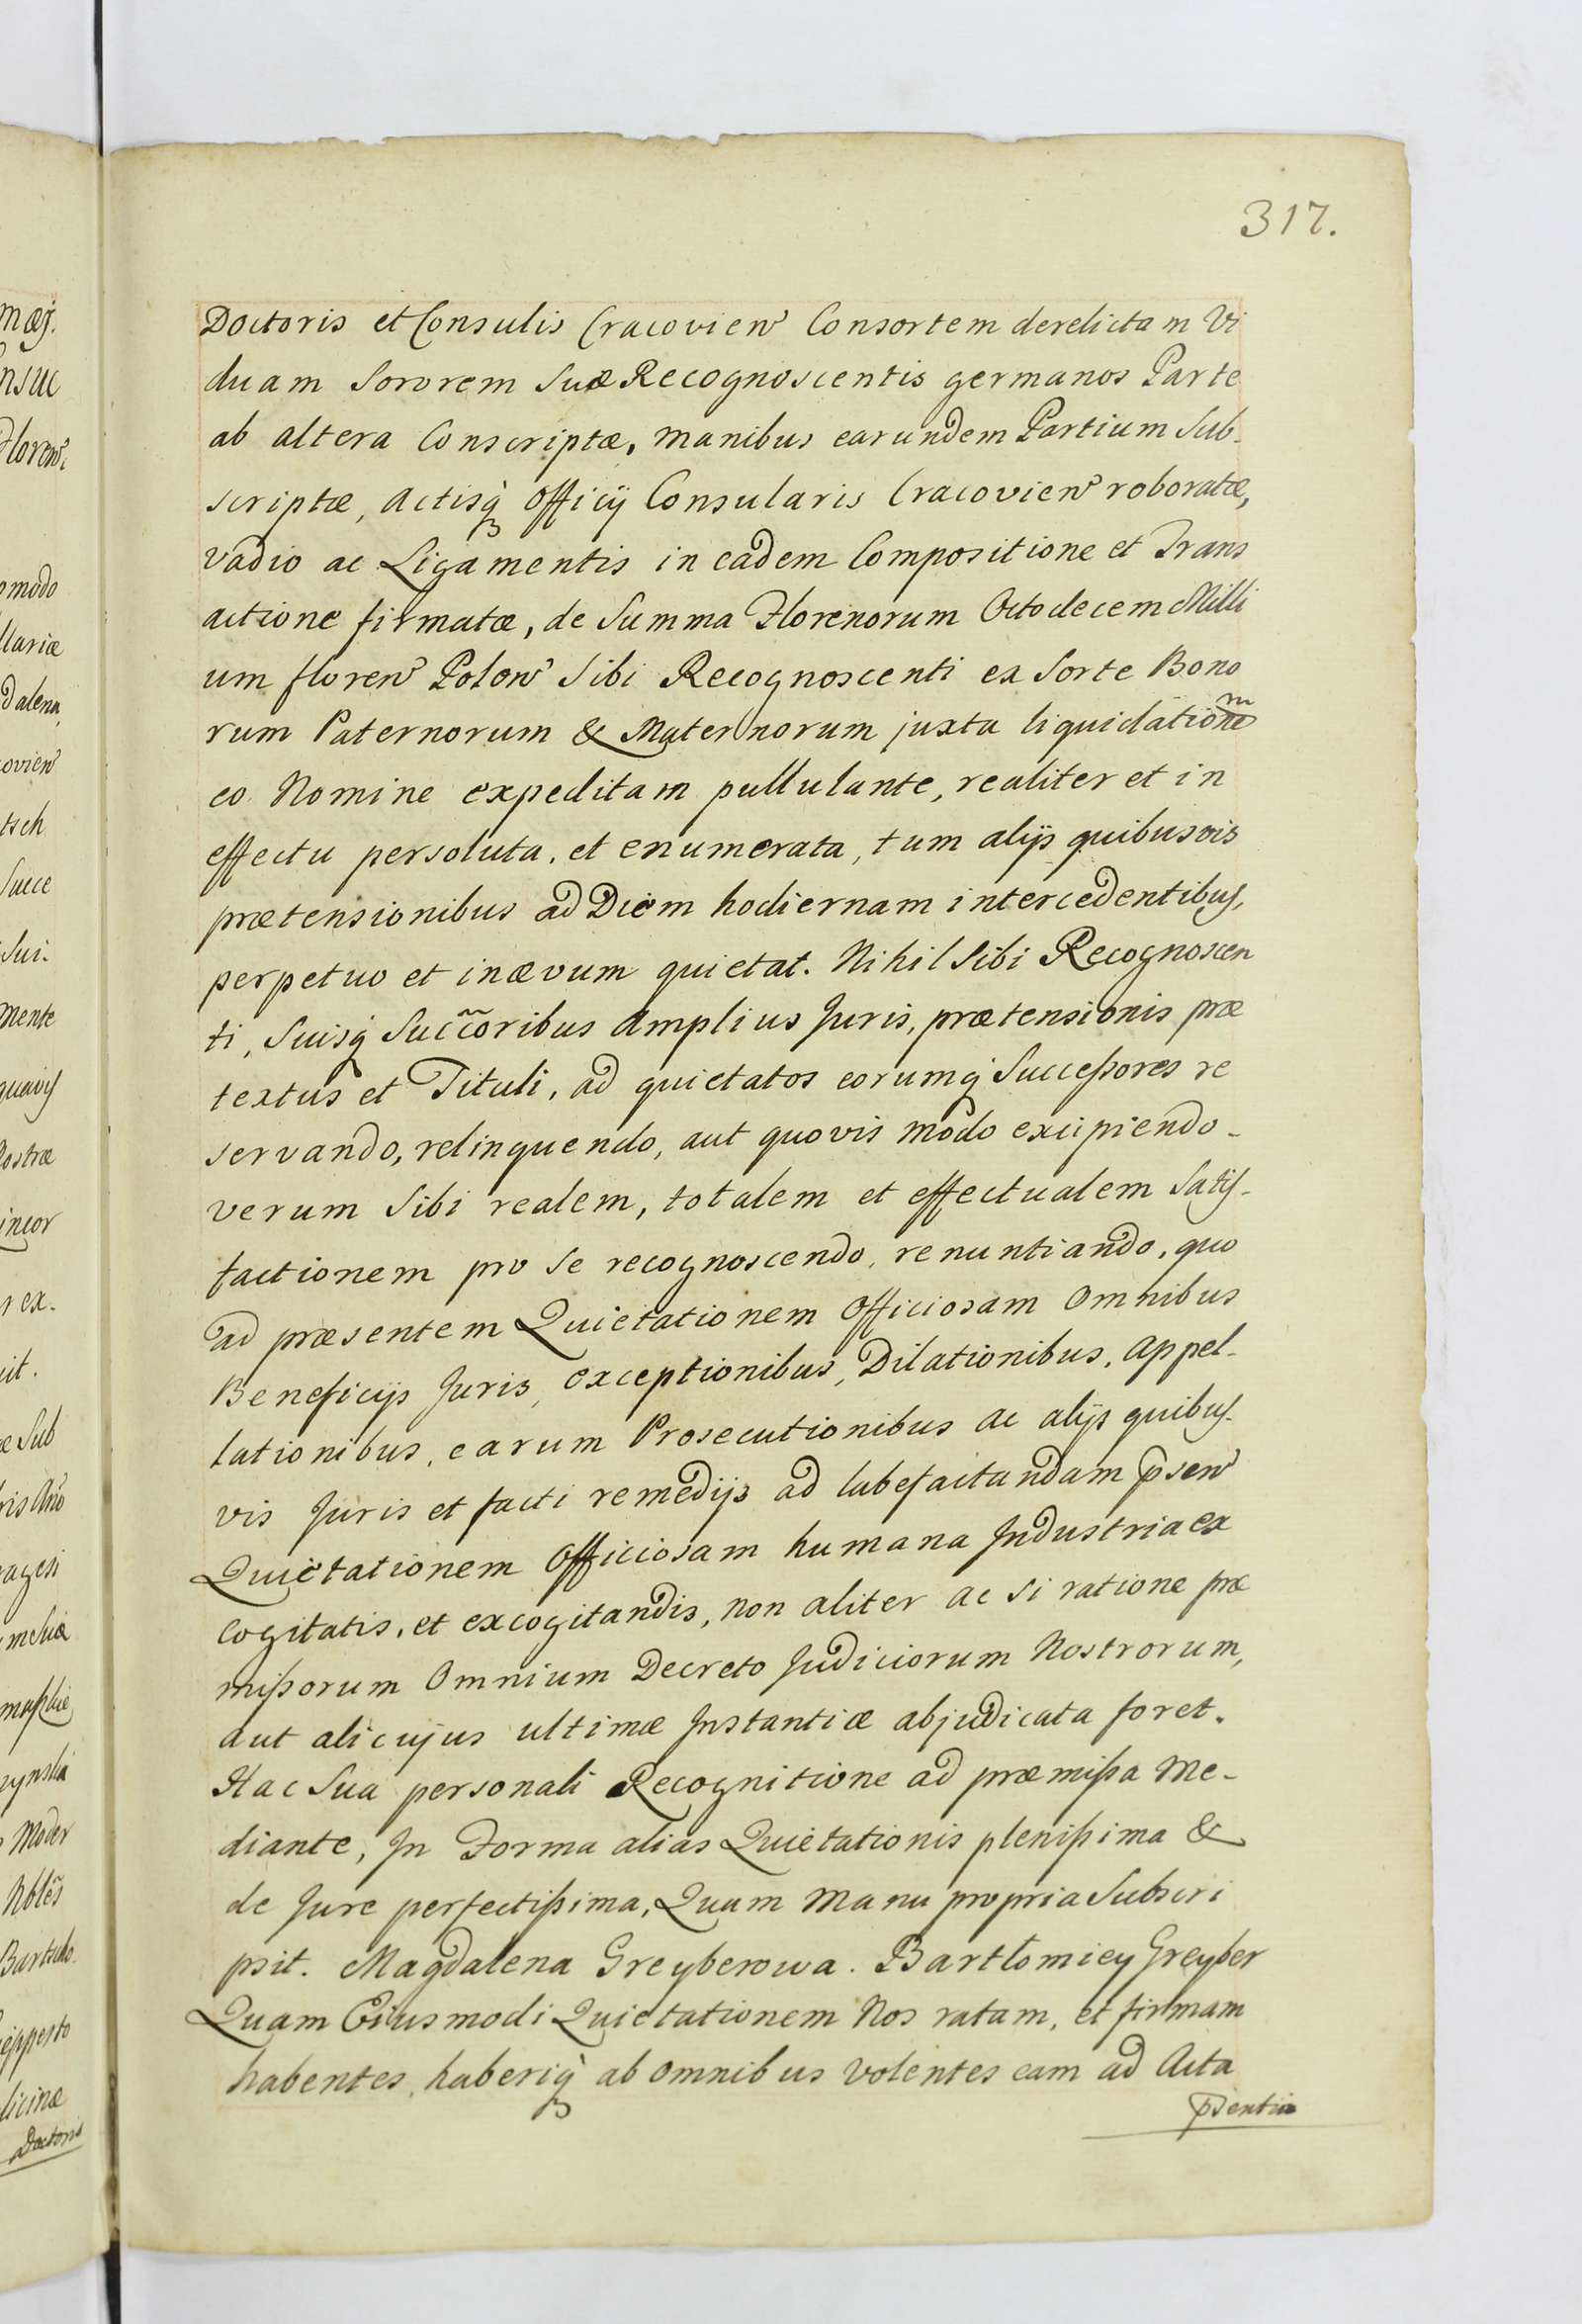 317.
Doctoris et Consulis Cracovien Consortem derelictam Vi
duam Sororem Suæ Recognoscentis germanos Parte
ab altera Conscriptæ, manibus earundem Partium Sub-
scriptæ, Actisq́ Officij Consularis Cracovien roboratæ,
vadio ac Ligamentis in eadem Compositione et Trans
actione firmatæ, de Summa Florenorum Octodecem Milli
um floren Polon Sibi Recognoscenti ex Sorte Bono
rum Paternorum & Maternorum juxta liquidationem
eo Nomine expeditam pullulante, realiter et in
effectu persoluta, et enumerata, tum alijs quibusvis
prætensionibus ad Diem hodiernam intercedentibus,
perpetuo et in ævum quietat. Nihil Sibi Recognoscen
ti, Suisq́ Succ̃oribus Amplius Juris, prætensionis præ
textus et Tituli, ad quietatos eorumq́ Successores re
servando, relinquendo, aut quovis modo excipiendo-
verum Sibi realem, totalem et effectualem Satis-
factionem pro se recognoscendo, renuntiando, quo
ad præsentem Quietationem Officiosam Omnibus
Beneficijs Juris, exceptionibus, Dilationibus, Appel-
lationibus, earum Prosecutionibus ac alijs quibus-
vis Juris et facti remedijs ad labefactandam p̃sen
Quietationem Officiosam humana Industria ex
cogitatis, et excogitandis, non aliter ac si ratione præ
missorum Omnium Decreto Judiciorum Nostrorum,
aut alicujus ultimæ Instantiæ abjudicata foret.
Hac Sua personali Recognitione ad præmissa Me-
diante, In Forma alias Quietationis plenissima &
de Jure perfectissima, Quam Manu propria Subscri
psit. Magdalena Greyberowa. Bartłomiey Greyber
Quam Eiusmodi Quietationem Nos ratam, et firmam
habentes, haberiq́ ab omnibus Volentes eam ad Acta
p̃sentia